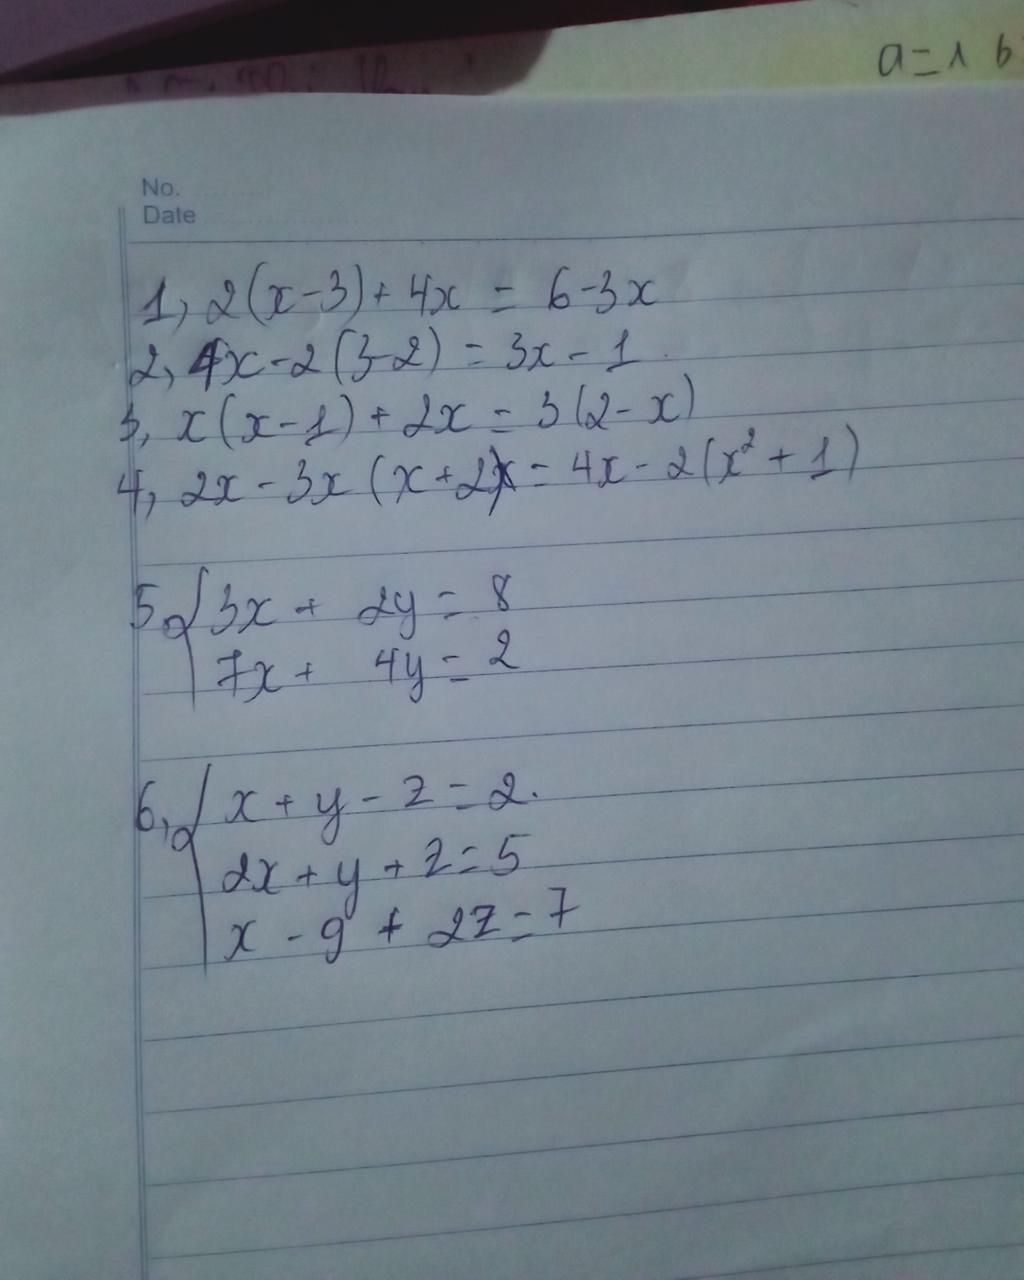 a=1 b
No.
Date
1, 2(x-3)+4x = 6-3x
2, 4x-2(3-2) = 3x-1
3, x(x-1)+2x = 3(2-x)
4, 2x-3x(x+2) = 4x-2(x²+1)
5, { 3x + 2y = 8
7x + 4y = 2
6, { x+y-z=2.
2x+y+z=5
x-y+2z=7